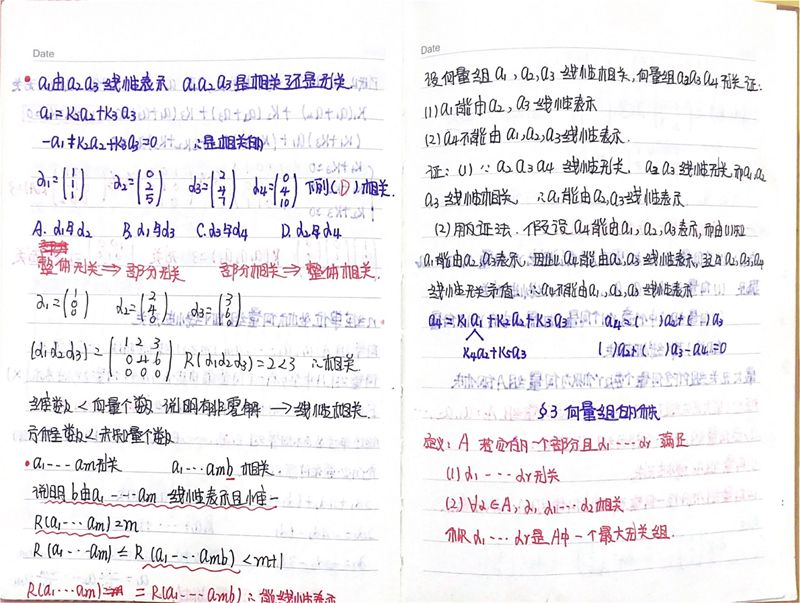 Date
• a₁由a₂a₃线性表示 a₁a₂a₃是相关还是无关
a₁=K₂a₂+K₃a₃
-a₁+K₂a₂+K₃a₃=0 ∴是相关的
α₁=(1 1 1) α₂=(0 2 5) α₃=(2 4 7) α₄=(0 4 10) 下列(D)相关.
A. α₁与α₂ B. α₁与α₃ C. α₃与α₄ D. α₂与α₄
整体无关⇒部分无关 部分相关⇒整体相关.
α₁=(1 0 0) α₂=(2 4 0) α₃=(3 6 0)
(α₁α₂α₃)=(1 2 3 0 4 6 0 0 0) R(α₁α₂α₃)=2<3 ∴相关.
当维数<向量个数 说明有非零解→线性相关.
方程数<未知量个数
• a₁---am无关 a₁---amb相关.
说明b由a₁---am线性表示且惟一
R(a₁---am)=m
R(a₁---am)≤R(a₁---amb)<m+1
R(a₁---am)=R(a₁---amb)∴能线性表示
Date
设向量组a₁,a₂,a₃线性相关,向量组a₂a₃a₄无关,证:
(1)a₁能由a₂,a₃线性表示
(2)a₄不能由a₁,a₂,a₃线性表示.
证:(1)∵a₂a₃a₄线性无关 a₂a₃线性无关而a₁a₂
a₃线性相关, ∴a₁能由a₂,a₃线性表示.
(2)用反证法.假设a₄能由a₁,a₂,a₃表示,而由(1)知
a₁能由a₂,a₃表示,因此a₄能由a₂,a₃线性表示,这与a₂,a₃,a₄
线性无关矛盾.∴a₄不能由a₁,a₂,a₃线性表示
a₄=K₁a₁+K₂a₂+K₃a₃ a₄=( )a₂+( )a₃
K₄a₂+K₅a₃ ( )a₂+( )a₃-a₄=0
§3 向量组的秩
定义:A 若它的一个部分且α₁---αr满足
(1)α₁---αr无关
(2)∀α∈A,α,α₁---αr相关
则α₁---αr是A中一个最大无关组.